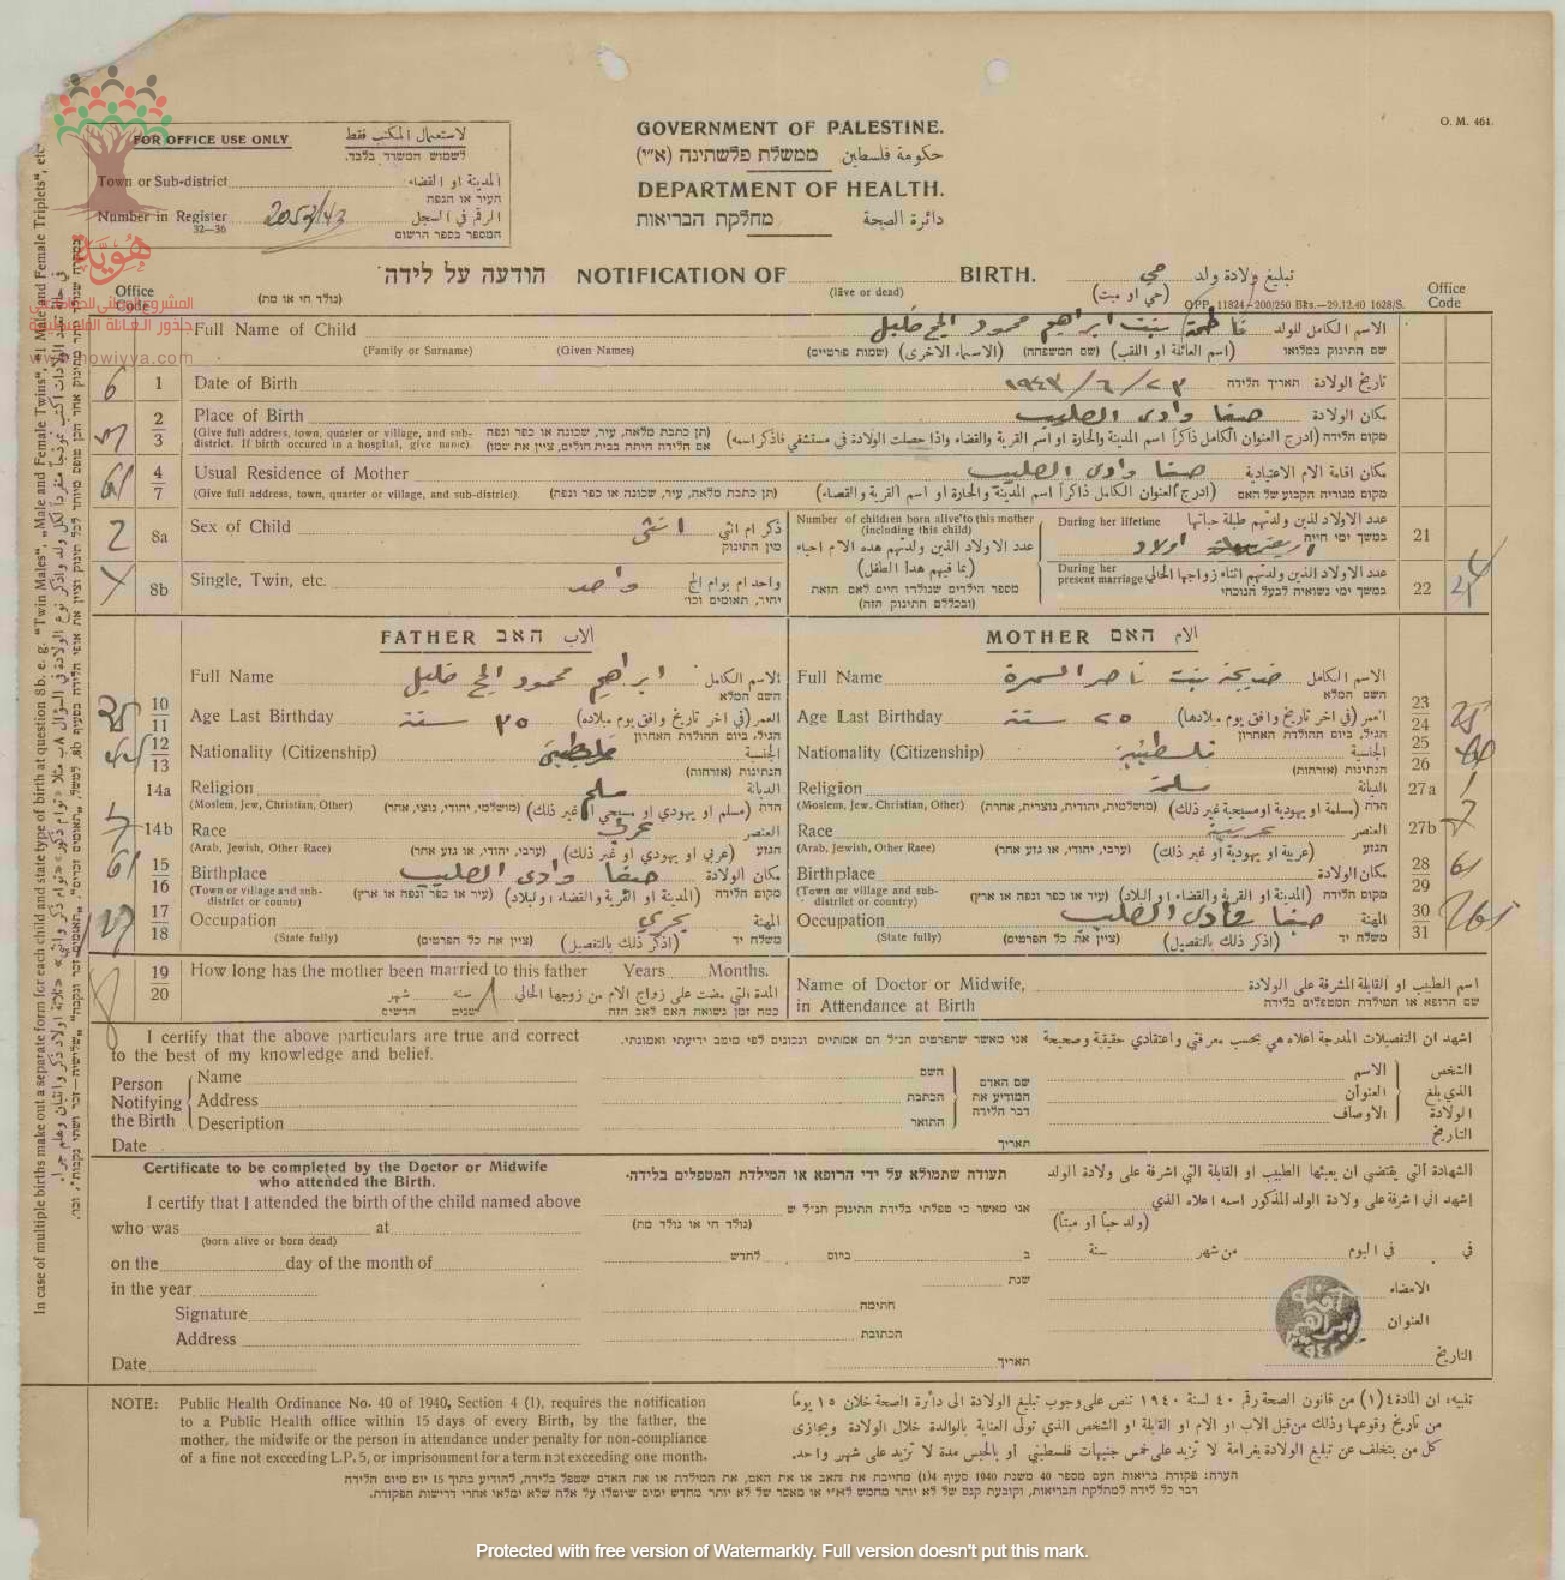 O. M. 464.
FOR OFFICE USE ONLY لاستعمال المكتب فقط
לשמוש המשרד בלבד.
Town or Sub-district المدينة او القضاء
העיר או הנפה
Number in Register 2053/43 الرقم في السجل
32—36 המספר בספר הרשום
GOVERNMENT OF PALESTINE.
ממשלת פלשתינה (א״י) حكومة فلسطين
DEPARTMENT OF HEALTH.
מחלקת הבריאות دائرة الصحة
هُويّة
www.howiyya.com
הודעה על לידה NOTIFICATION OF BIRTH. تبليغ ولادة ولد حي
(נולד חי או מת) (live or dead) (حي او ميت)
OPP. 11824—200/250 Bks.—29.12.40 1628/S.
Office Code Office Code
Full Name of Child فاطمة بنت ابراهيم محمود الحج خليل الاسم الكامل للولد
(Family or Surname) (Given Names) (שמות פרטיים) (الاسماء الاخرى) (שם המשפחה) (اسم العائلة او اللقب) שם התינוק במלואו
6 1 Date of Birth ١٩٤٣/٦/٢٣ תאריך הלידה تاريخ الولادة
2 3 Place of Birth صفا وادى الصليب مكان الولادة
(Give full address, town, quarter or village, and sub-district. If birth occured in a hospital, give name) (תן כתבת מלאה, עיר, שכונה או כפר ונפה אם הלידה היתה בבית חולים, ציין את שמו) מקום הלידה (ادرج العنوان الكامل ذاكراً اسم المدينة والحارة او اسم القرية والقضاء واذا حصلت الولادة في مستشفى فاذكر اسمه)
61 4 7 Usual Residence of Mother صفا وادى الصليب مكان اقامة الام الاعتيادية
(Give full address, town, quarter or village, and sub-district). (תן כתבת מלאה, עיר, שכונה או כפר ונפה) (ادرج العنوان الكامل ذاكراً اسم المدينة والحارة او اسم القرية والقضاء) מקום מגוריה הקבוע של האם
2 8a Sex of Child انثى ذكر ام انثى
מין התינוק
Number of children born alive to this mother (including this child)
عدد الاولاد الذين ولدتهم هذه الام احياء
(بما فيهم هذا الطفل)
מספר הילדים שנולדו חיים לאם הזאת
(ובכללם התינוק הזה)
During her lifetime عدد الاولاد الذين ولدتهم طيلة حياتها 21
במשך ימי חייה اولاد
During her present marriage عدد الاولاد الذين ولدتهم اثناء زواجها الحالي 22
במשך ימי נשואיה לבעל הנוכחי
8b Single, Twin, etc. واحد واحد ام توام الخ
יחיד, תאומים וכו׳
FATHER האב الاب
Full Name ابراهيم محمود الحج خليل الاسم الكامل
השם המלא
10 11 Age Last Birthday ٣٥ سنة العمر (في اخر تاريخ وافق يوم ميلاده)
הגיל, ביום ההולדת האחרון
12 13 Nationality (Citizenship) فلسطيني الجنسية
הנתינות (אזרחות)
14a Religion مسلم الديانة
(Moslem, Jew, Christian, Other) (מושלמי, יהודי, נוצרי, אחר) (مسلم او يهودي او مسيحي او غير ذلك) הדת
14b Race عربي العنصر
(Arab, Jewish, Other Race) (ערבי, יהודי, או גזע אחר) (عربي او يهودي او غير ذلك) הגזע
61 15 16 Birthplace صفا وادى الصليب مكان الولادة
(Town or village and sub-district or county) (עיר או כפר ונפה או ארץ) (المدينة او القرية والقضاء او البلاد) מקום הלידה
17 18 Occupation بحري المهنة
(State fully) (ציין את כל הפרטים) (اذكر ذلك بالتفصيل) משלח יד
MOTHER האם الام
Full Name خديجة بنت ناصر السمرة الاسم الكامل
השם המלא
23 24 Age Last Birthday ٢٥ سنة العمر (في اخر تاريخ وافق يوم ميلادها) 25
הגיל, ביום ההולדת האחרון
25 26 Nationality (Citizenship) فلسطينية الجنسية
הנתינות (אזרחות)
27a Religion مسلمة الديانة
(Moslem, Jew, Christian, Other) (מושלמית, יהודית, נוצרית, אחרת) (مسلمة او يهودية او مسيحية او غير ذلك) הדת
27b Race عربية العنصر
(Arab, Jewish, Other Race) (ערבי, יהודי, או גזע אחר) (عربية او يهودية او غير ذلك) הגזע
28 29 Birthplace مكان الولادة 61
(Town or village and sub-district or country) (עיר או כפר ונפה או ארץ) (المدينة او القرية والقضاء او البلاد) מקום הלידה
30 31 Occupation صفا وادى الصليب المهنة
(State fully) (ציין את כל הפרטים) (اذكر ذلك بالتفصيل) משלח יד
19 20 How long has the mother been married to this father Years Months.
المدة التي مضت على زواج الام من زوجها الحالي ٨ سنه شهر
כמה זמן נשואה האם לאב הזה שנים חדשים
Name of Doctor or Midwife, in Attendance at Birth اسم الطبيب او القابلة المشرفة على الولادة
שם הרופא או המילדת המטפלים בלידה
I certify that the above particulars are true and correct to the best of my knowledge and belief.
אני מאשר שהפרטים הנ״ל הם אמתיים ונכונים לפי מיטב ידיעתי ואמונתי.
اشهد ان التفصيلات المدرجة اعلاه هي بحسب معرفتي واعتقادي حقيقية وصحيحة
Person Notifying the Birth
Name השם الاسم
Address הכתבת العنوان
Description התואר الاوصاف
שם האדם המודיע את דבר הלידה
الشخص الذي يبلغ الولادة
Date תאריך التاريخ
Certificate to be completed by the Doctor or Midwife who attended the Birth.
תעודה שתמולא על ידי הרופא או המילדת המטפלים בלידה.
الشهادة التي يقتضى ان يعبئها الطبيب او القابلة التي اشرفة على ولادة الولد
I certify that I attended the birth of the child named above
אני מאשר כי טפלתי בלידת התינוק הנ״ל ש
اشهد اني اشرفة على ولادة الولد المذكور اسمه اعلاه الذي
who was at (נולד חי או נולד מת) (ولد حياً او ميتاً)
(born alive or born dead)
on the day of the month of ב ביום לחדש في في اليوم من شهر سنة
in the year שנת
Signature חתימה الامضاء
Address הכתובת العنوان
Date תאריך التاريخ
NOTE: Public Health Ordinance No. 40 of 1940, Section 4 (1), requires the notification
to a Public Health office within 15 days of every Birth, by the father, the
mother, the midwife or the person in attendance under penalty for non-compliance
of a fine not exceeding L.P.5, or imprisonment for a term not exceeding one month.
تنبيه: ان المادة ٤(١) من قانون الصحة رقم ٤٠ لسنة ١٩٤٠ تنص على وجوب تبليغ الولادة الى دائرة الصحة خلال ١٥ يوماً
من تاريخ وقوعها وذلك من قبل الاب او الام او القابلة او الشخص الذي تولى العناية بالوالدة خلال الولادة ويجازى
كل من يتخلف عن تبليغ الولادة بغرامة لا تزيد على خمس جنيهات فلسطيني او بالحبس مدة لا تزيد على شهر واحد.
הערה: פקודת בריאות העם מספר 40 משנת 1940 סעיף 4(1) מחייבת את האב או את האם, את המילדת או את האדם שטפל בלידה, להודיע בתוך 15 יום מיום הלידה
דבר כל לידה למחלקת הבריאות, וקובעת קנס של לא יותר מחמש לא״י או מאסר של לא יותר מחדש ימים שיוטלו על אלה שלא ימלאו אחרי דרישות הפקודה.
In case of multiple births make out a separate form for each child and state type of birth at question 8b. e. g. "Twin Males", "Male and Female Twins", "1 Male and Female Triplets", etc.
Protected with free version of Watermarkly. Full version doesn't put this mark.